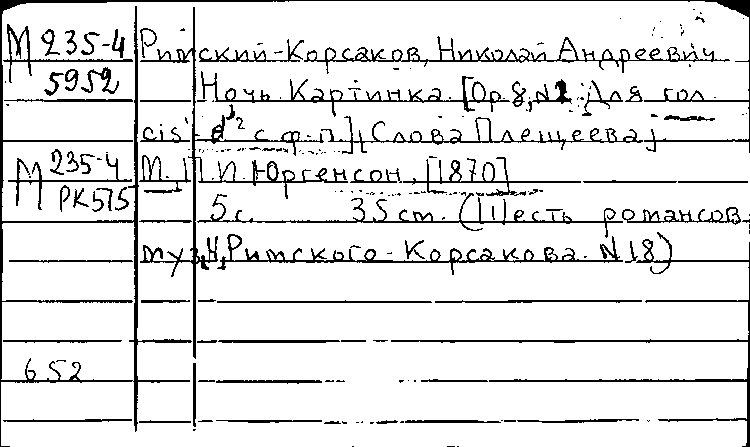 М 235-4 Римский-Корсаков, Николай Андреевич
5952 Ночь. Картинка. [Op. 8, N2. Для гол.
cis¹- с ф.-п.] [Слова Плещеева].
М 235-4 М., П.И. Юргенсон, [1870]
РК575 5 с. 35 cm. (Шесть романсов
муз. Н. Римского-Корсакова. N 18)
652